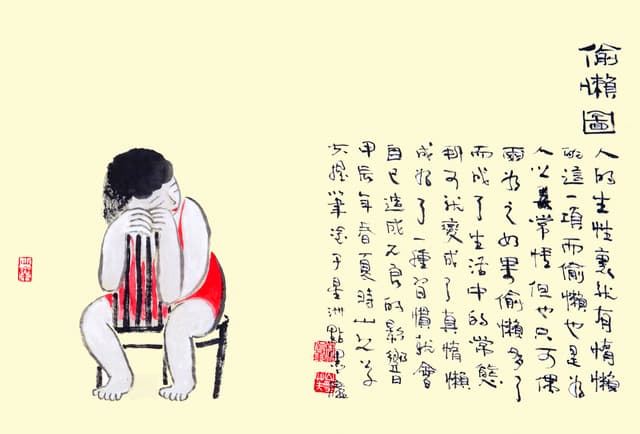 偷懶圖
人的生性裏就有惰懶
的這一項而偷懶也是為
人以常情但也只可偶
爾為之如果偷懶多了
而成了生活中的常態
那可就變成了真惰懶
成了一種習慣就會
自己造成不良的影響
甲辰年春夏時山
提筆塗于星洲點墨齋